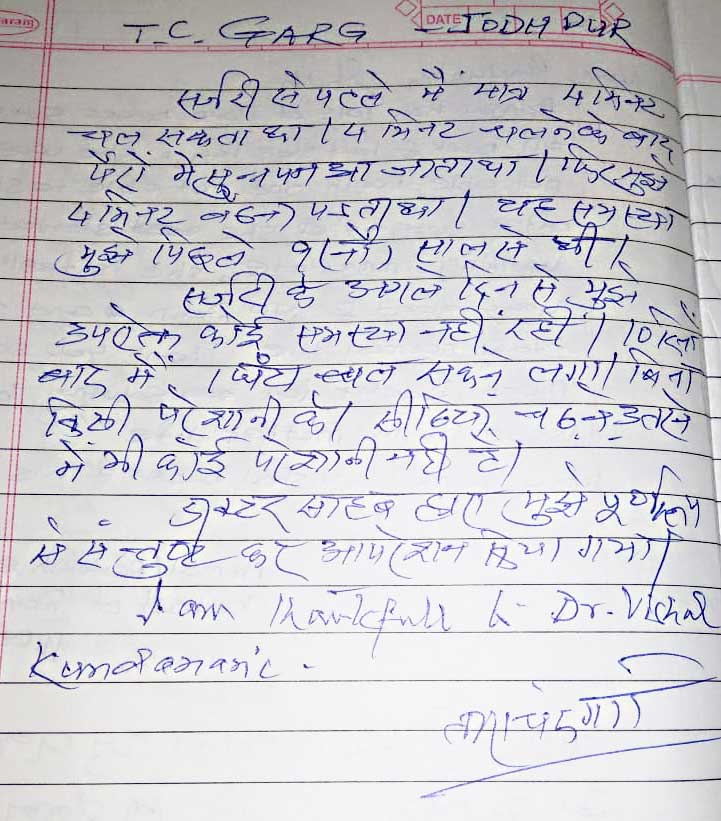 aram
DATE
T.C. GARG - JODHPUR
सर्जरी से पहले मैं मात्र 4 मिनट
चल सकता था। 4 मिनट चलने के बाद
पैरों में सुन्नपन आ जाता था। फिर मुझे
4 मिनट पड़ता था। यह समस्या
मुझे पिछले 9 (नौ) साल से थी।
सर्जरी के अगले दिन से मुझे
उपरोक्त कोई समस्या नहीं रही। 10 दिनों
बाद में, 1 घंटा चल सकने लगा। बिना
किसी परेशानी के। सीढियां चढने उतरने
में भी कोई परेशानी नहीं है।
डाक्टर साहब द्वारा मुझे पूर्ण रूप
से संतुष्ट कर आपरेशन किया गया।
I am thankfull to Dr. Vishal
Kundnani.